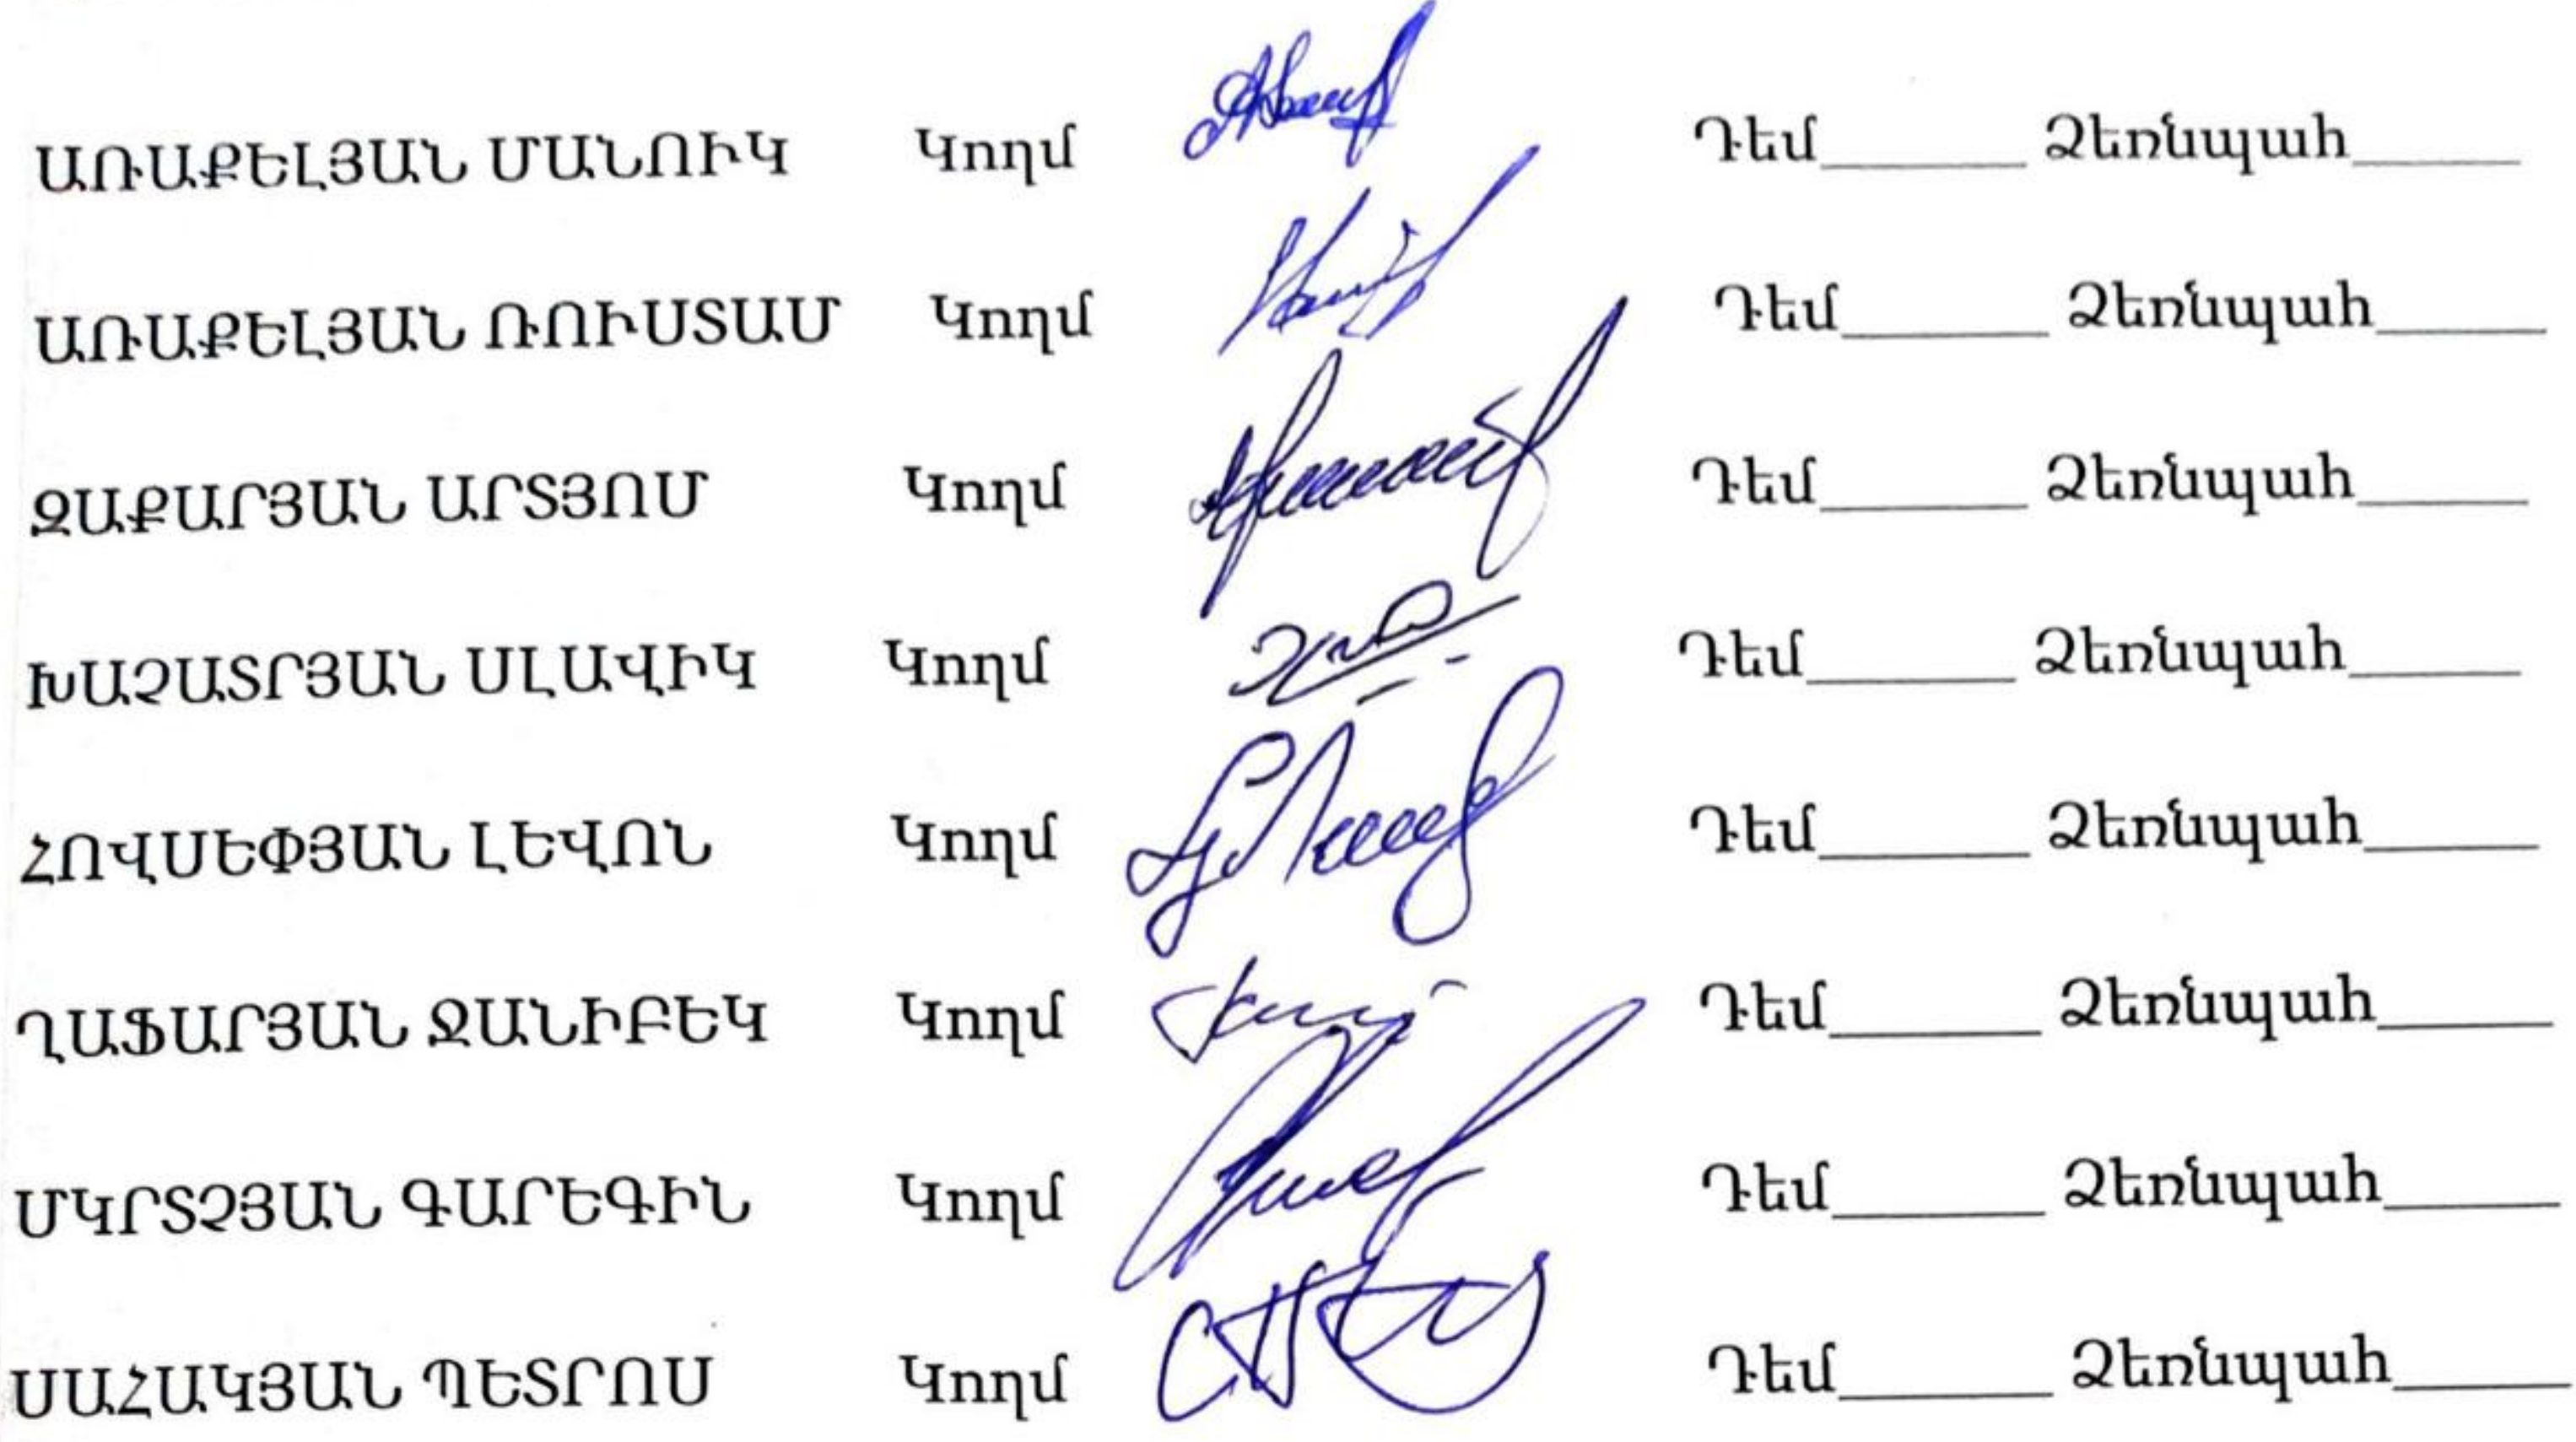 ԱՌԱՔԵԼՅԱՆ ՄԱՆՈՒԿ Կողմ Դեմ______ Ձեռնպահ_____
ԱՌԱՔԵԼՅԱՆ ՌՈՒՍՏԱՄ Կողմ Դեմ______ Ձեռնպահ_____
ԶԱՔԱՐՅԱՆ ԱՐՏՅՈՄ Կողմ Դեմ______ Ձեռնպահ_____
ԽԱՉԱՏՐՅԱՆ ՍԼԱՎԻԿ Կողմ Դեմ______ Ձեռնպահ_____
ՀՈՎՍԵՓՅԱՆ ԼԵՎՈՆ Կողմ Դեմ______ Ձեռնպահ_____
ՂԱՖԱՐՅԱՆ ՋԱՆԻԲԵԿ Կողմ Դեմ______ Ձեռնպահ_____
ՄԿՐՏՉՅԱՆ ԳԱՐԵԳԻՆ Կողմ Դեմ______ Ձեռնպահ_____
ՍԱՀԱԿՅԱՆ ՊԵՏՐՈՍ Կողմ Դեմ______ Ձեռնպահ_____